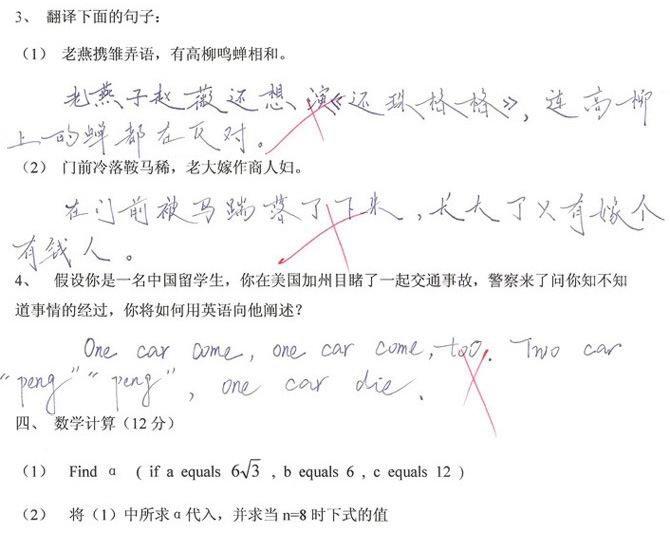 3、 翻译下面的句子：
（1） 老燕携雏弄语，有高柳鸣蝉相和。
老燕子赵薇还想演《还珠格格》，连高柳
上的蝉都在反对。
（2） 门前冷落鞍马稀，老大嫁作商人妇。
在门前被马踹落了下来，长大了只有嫁个
有钱人。
4、 假设你是一名中国留学生，你在美国加州目睹了一起交通事故，警察来了问你知不知
道事情的经过，你将如何用英语向他阐述？
One car come, one car come, too. Two car
"peng" "peng", one car die.
四、 数学计算（12 分）
（1） Find α （ if a equals 6√3 , b equals 6 , c equals 12 ）
（2） 将（1）中所求α代入，并求当 n=8 时下式的值